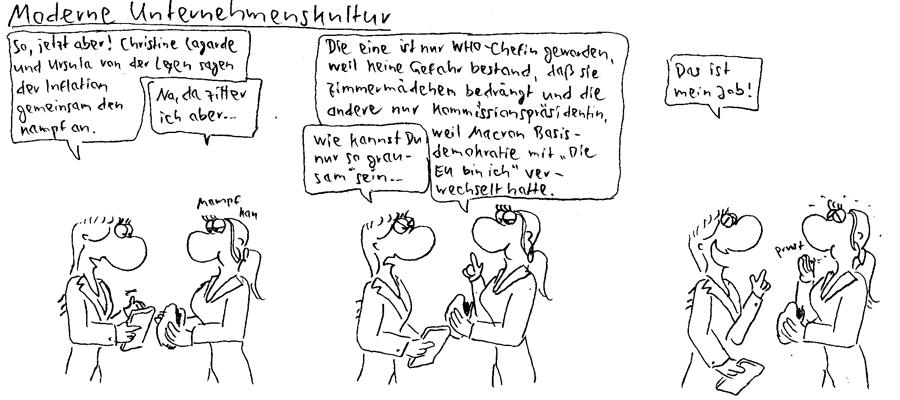 Moderne Unternehmenskultur
So, jetzt aber! Christine Lagarde
und Ursula von der Leyen sagen
der Inflation
gemeinsam den
Kampf an.
Na, da zitter
ich aber...
Mampf
kau
Die eine ist nur WHO-Chefin geworden,
weil keine Gefahr bestand, daß sie
Zimmermädchen bedrängt und die
andere nur Kommissionspräsidentin,
weil Macron Basis-
demokratie mit „Die
EU bin ich" ver-
wechselt hatte.
Wie kannst Du
nur so grau-
sam sein...
Das ist
mein Job!
prust